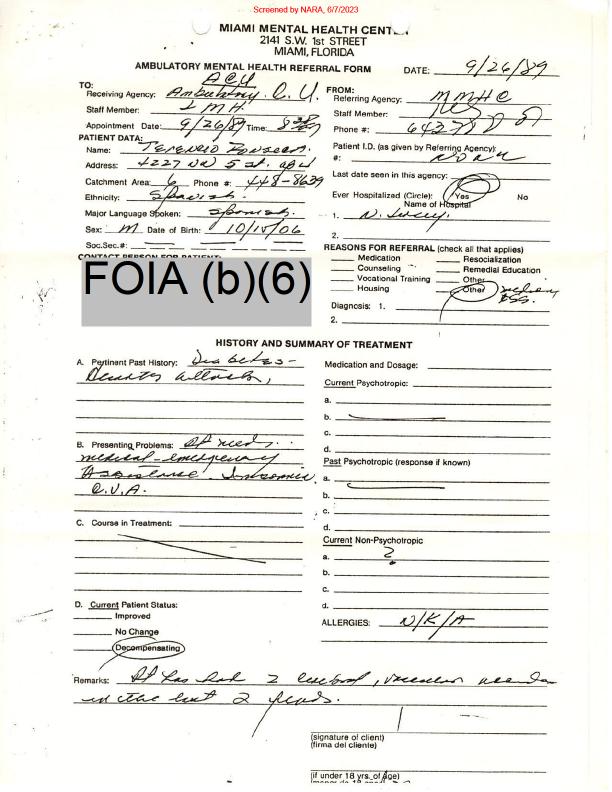 Screened by NARA, 6/7/2023
MIAMI MENTAL HEALTH CENT
2141 S.W. 1st STREET
MIAMI, FLORIDA
AMBULATORY MENTAL HEALTH REFERRAL FORM DATE: 9/26/89
TO: ACU
Receiving Agency: Ambulatory C. U.
Staff Member: JMH
Appointment Date: 9/26/89 Time:
PATIENT DATA:
Name: Terencio
Address: 4227 NW 5 st. apt
Catchment Area: 6 Phone #: 448-8639
Ethnicity: Spanish.
Major Language Spoken: Spanish.
Sex: M Date of Birth: 10/15/06
Soc.Sec.#:
CONTACT PERSON FOR PATIENT:
FOIA (b)(6)
FROM:
Referring Agency: MMHC
Staff Member:
Phone #:
Patient I.D. (as given by Referring Agency)
#:
Last date seen in this agency:
Ever Hospitalized (Circle): Yes No
Name of Hospital
1.
2.
REASONS FOR REFERRAL (check all that applies)
Medication Resocialization
Counseling Remedial Education
Vocational Training Other
Housing Other
Diagnosis: 1.
2.
HISTORY AND SUMMARY OF TREATMENT
A. Pertinent Past History: Diabetes-
attack,
B. Presenting Problems: Pt needs
medical-emergency
Assistance. Insomnia
C.V.A.
C. Course in Treatment:
D. Current Patient Status:
Improved
No Change
Decompensating
Medication and Dosage:
Current Psychotropic:
a.
b.
c.
d.
Past Psychotropic (response if known)
a.
b.
c.
d.
Current Non-Psychotropic
a. ?
b.
c.
d.
ALLERGIES: N/K/A
Remarks: Pt has had 2 cerebral, vascular
in the last 2 years.
(signature of client)
(firma del cliente)
(if under 18 yrs. of age)